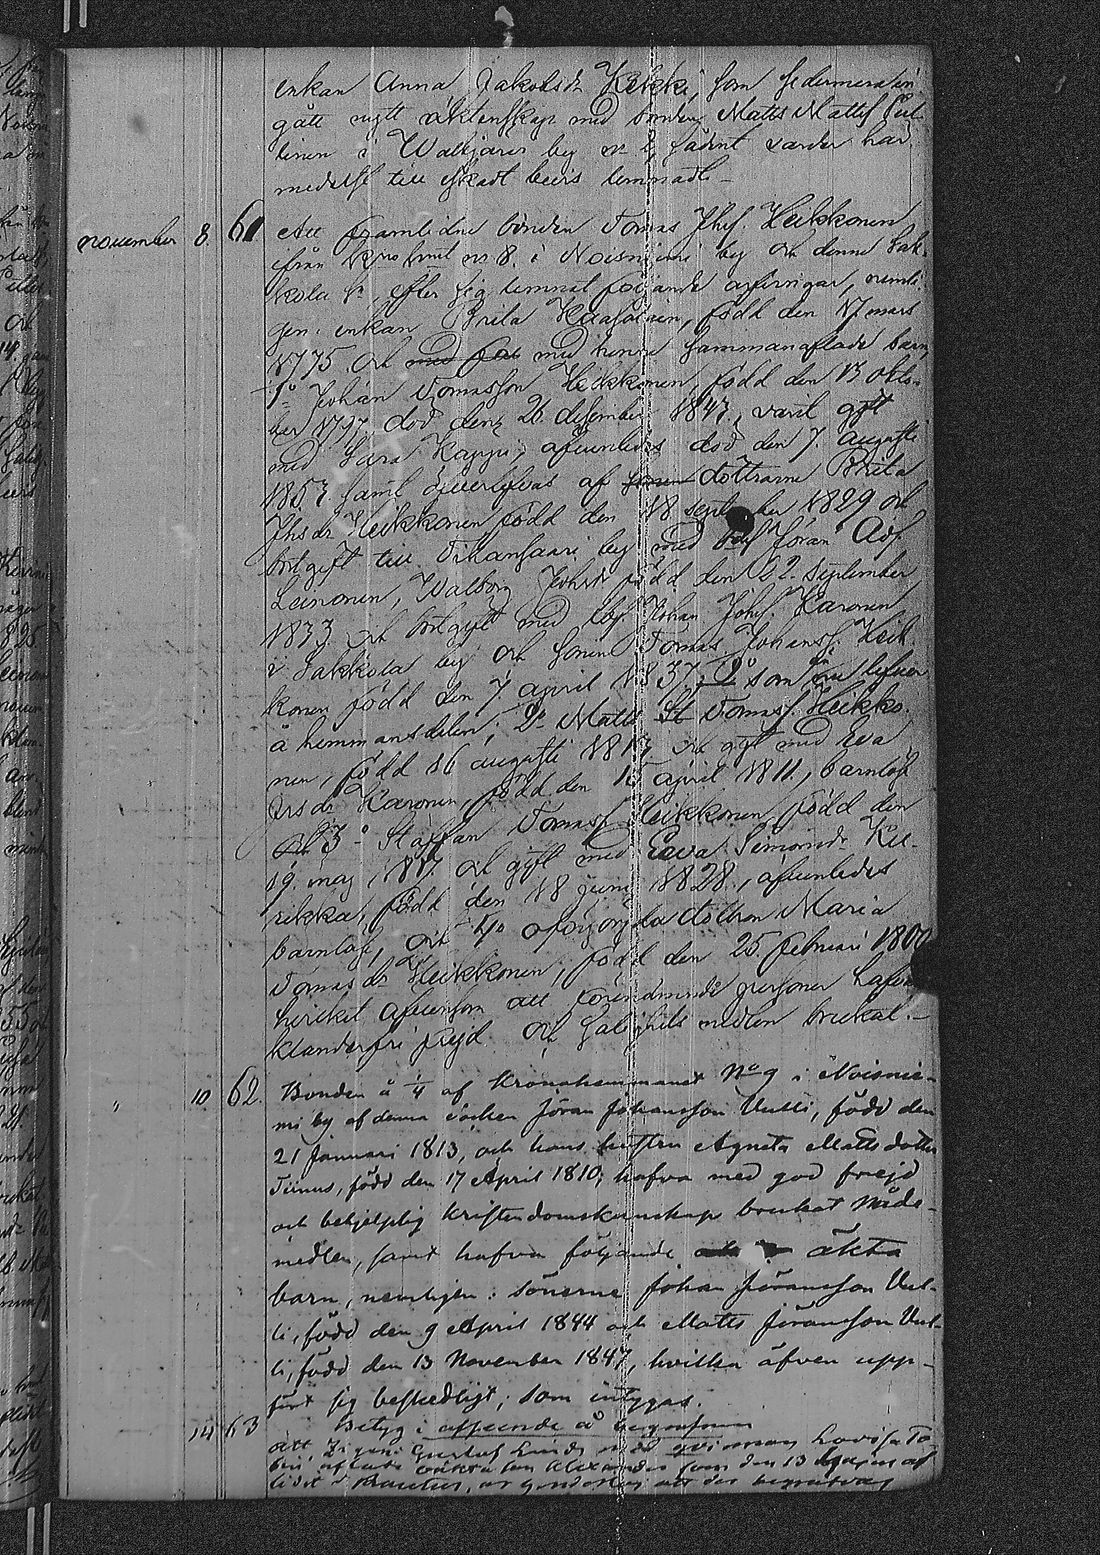 enkan Anna Jakobsdr Kekki, som sedermera in
gått nytt äktenskap med bonden Matts Mattss
linen i Walkjärvi by nr 2, sådant varder här
medelst till skadt bevis lemnadt.
november 8. 61 Att framlidne bonden Tomas Jhss. Heikkonen
från Krono hmt nr 8. i Noisniemi by och denne Sak-
kola sn, efter sig lemnat följande arfvingar, nemli
gen: enkan Brita Haapalain, född den 17 mars
1775 och med henne sammanaflade barn,
1o Johan Tomasson Heikkonen, född den 13 okto-
ber 1797 död den 26 desember 1847, varit gift
med Sara Kappi, afvenledes död den 7 augusti
1857 samt öfverlefvas af döttrarne Brita
Jhsdr. Heikkonen född den 18 september 1829 och
bortgift till Vilansaari by med Göran Ads.
Leinonen, Walborg Johsdr född den 22. september
1833 och bortgift med Johan Johss. Karonen
i Sakkola by och sonen Tomas Johanss. Heik
konen född den 7 april 1837, som lefver
å hemmansdelen; 2o Matts Tomass. Heikko-
nen, född 16 augusti 1817 och gift med Eva
Karonen, född den 15 april 1811, barnlös
och 3o Staffan Tomass Heikkonen, född den
19. maj 1817. och gift med Eeva Simonsdr Kui-
rikka, född den 18 juni 1828, afvenledes
barnlös, och 4o dottren Maria
Tomasdr Heikkonen, född den 25 februari 1800
hvilket äfvensom att förenämnde personer hafva
klanderfri frejd och salighets medlen brukat.-
" 10. 62. Bonden å 1/4 af Kronohemmanet No 9 i Noisnie-
mi by af denna socken Jöran Johansson Uutti, född den
21 Januari 1813, och hans hustru Agneta Mattsdotter
Tiinus, född den 17 April 1810, hafva med god frejd
och behjelplig kristendomskunskap brukat Nåde-
medlen, samt hafva följande äkta
barn, nemligen: Sönerne Johan Jöransson Uut-
ti, född den 9 April 1844 och Matts Jöransson Uut-
ti, född den 13 November 1847, hvilka äfven upp-
fört sig beskedligt; som intygas.
14 63 Betyg i afseende å begrafning
Att Gustaf Lund med qvinnan Lovisa
aflade oäkta son Alexander som den 13 af
lidit i Rautus, är